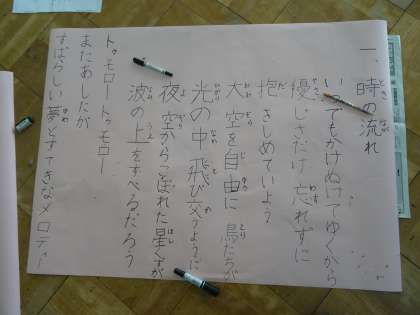 一、時の流れ
いつでもかけぬけてゆくから
優しさだけ忘れずに
抱きしめていよう
大空を自由に鳥たちが
光の中飛び交うように
夜空からこぼれた星くずが
波の上をすべるだろう
トゥモロートゥモロー
またあしたが
すばらしい夢とすてきなメロディー